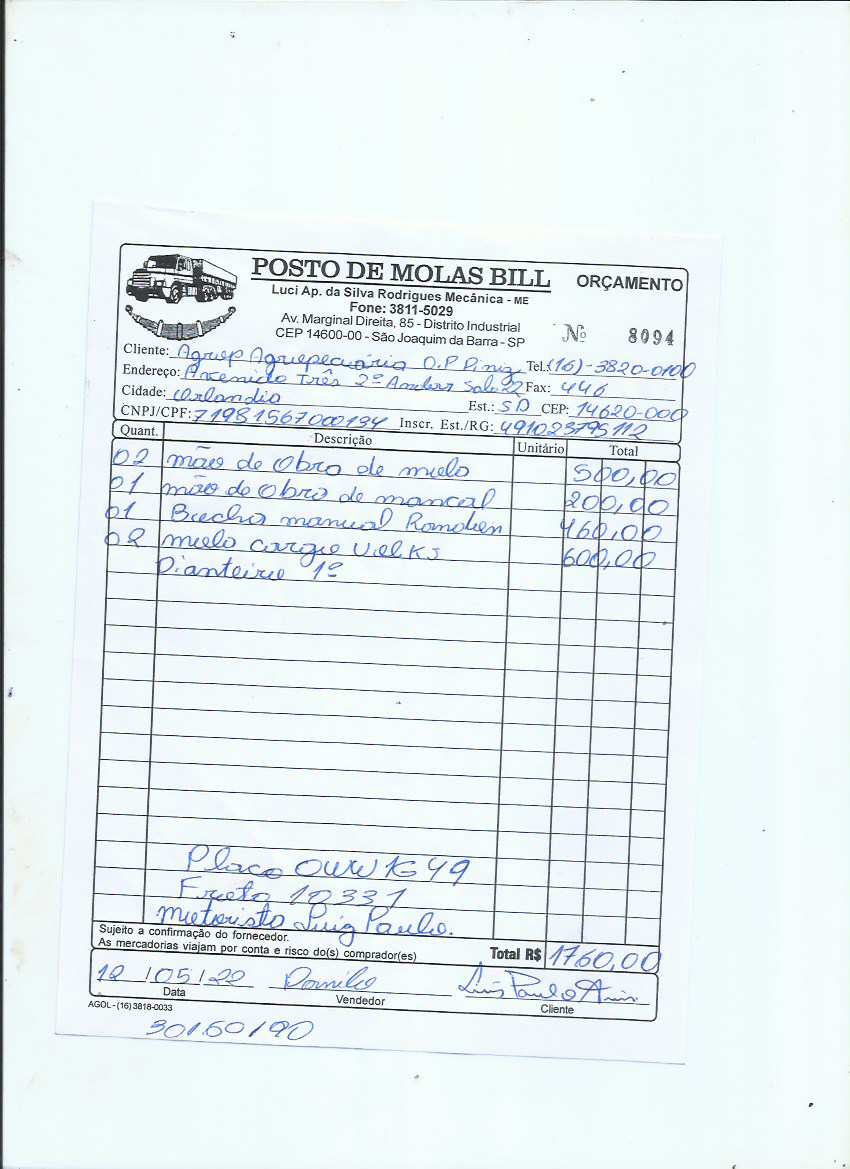 POSTO DE MOLAS BILL
ORÇAMENTO
Luci Ap. da Silva Rodrigues Mecânica - ME
Fone: 3811-5029
Av. Marginal Direita, 85 - Distrito Industrial
CEP 14600-00 - São Joaquim da Barra - SP
Nº 8094
Cliente: Agruep Agruepecuária O.P Diniz Tel.(16)-3820-0100
Endereço: Avenida Três 2º Andar Sala 22 Fax: 446
Cidade: Orlandia Est.: SP CEP: 14620-000
CNPJ/CPF: 71981567000134 Inscr. Est./RG: 491023795112
Quant. Descrição Unitário Total
02 mão de Obra de mola 500,00
01 mão de Obra de mancal 200,00
01 Bucha manual Randon 460,00
02 mola carga 600,00
Dianteira 1º
Placa 1G49
Frota 10331
Motorista Luiz Paulo.
Sujeito a confirmação do fornecedor.
As mercadorias viajam por conta e risco do(s) comprador(es)
Total R$ 1760,00
12/05/22 Danilo Luis Paulo
Data Vendedor Cliente
AGOL - (16) 3818-0033
30/60/90